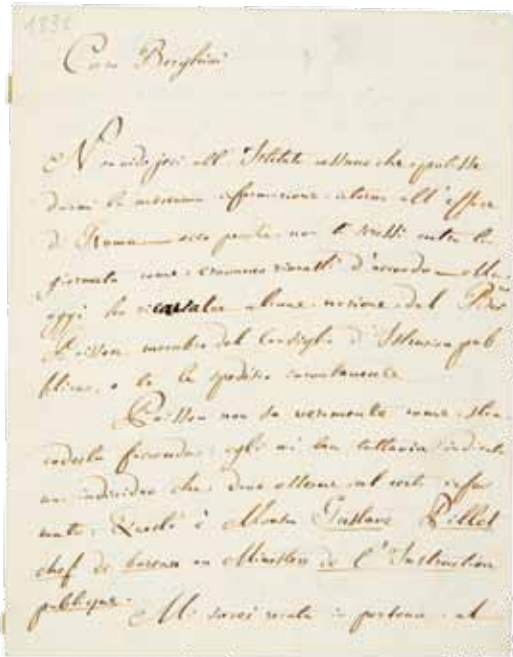 1832
Caro Borghini
Non vidi jeri all' Istituto nessuno che potesse
darmi la menoma informazione intorno all' affare
di Roma ecco perchè non ti scrissi entro la
giornata come eravamo rimasti d'accordo. Ma
oggi ho alcune notizie dal
Poisson membro del Consiglio d' Istruzion pub
blica, e te le spedisco
Poisson non sa veramente come stia
la faccenda; egli mi ha tuttavia indicato
un individuo che deve esserne al certo infor
mato. Questi è Monsr Gustave Pillet
chef de bureau au Ministère de l'Instruction
publique. Mi sarei recato in persona al